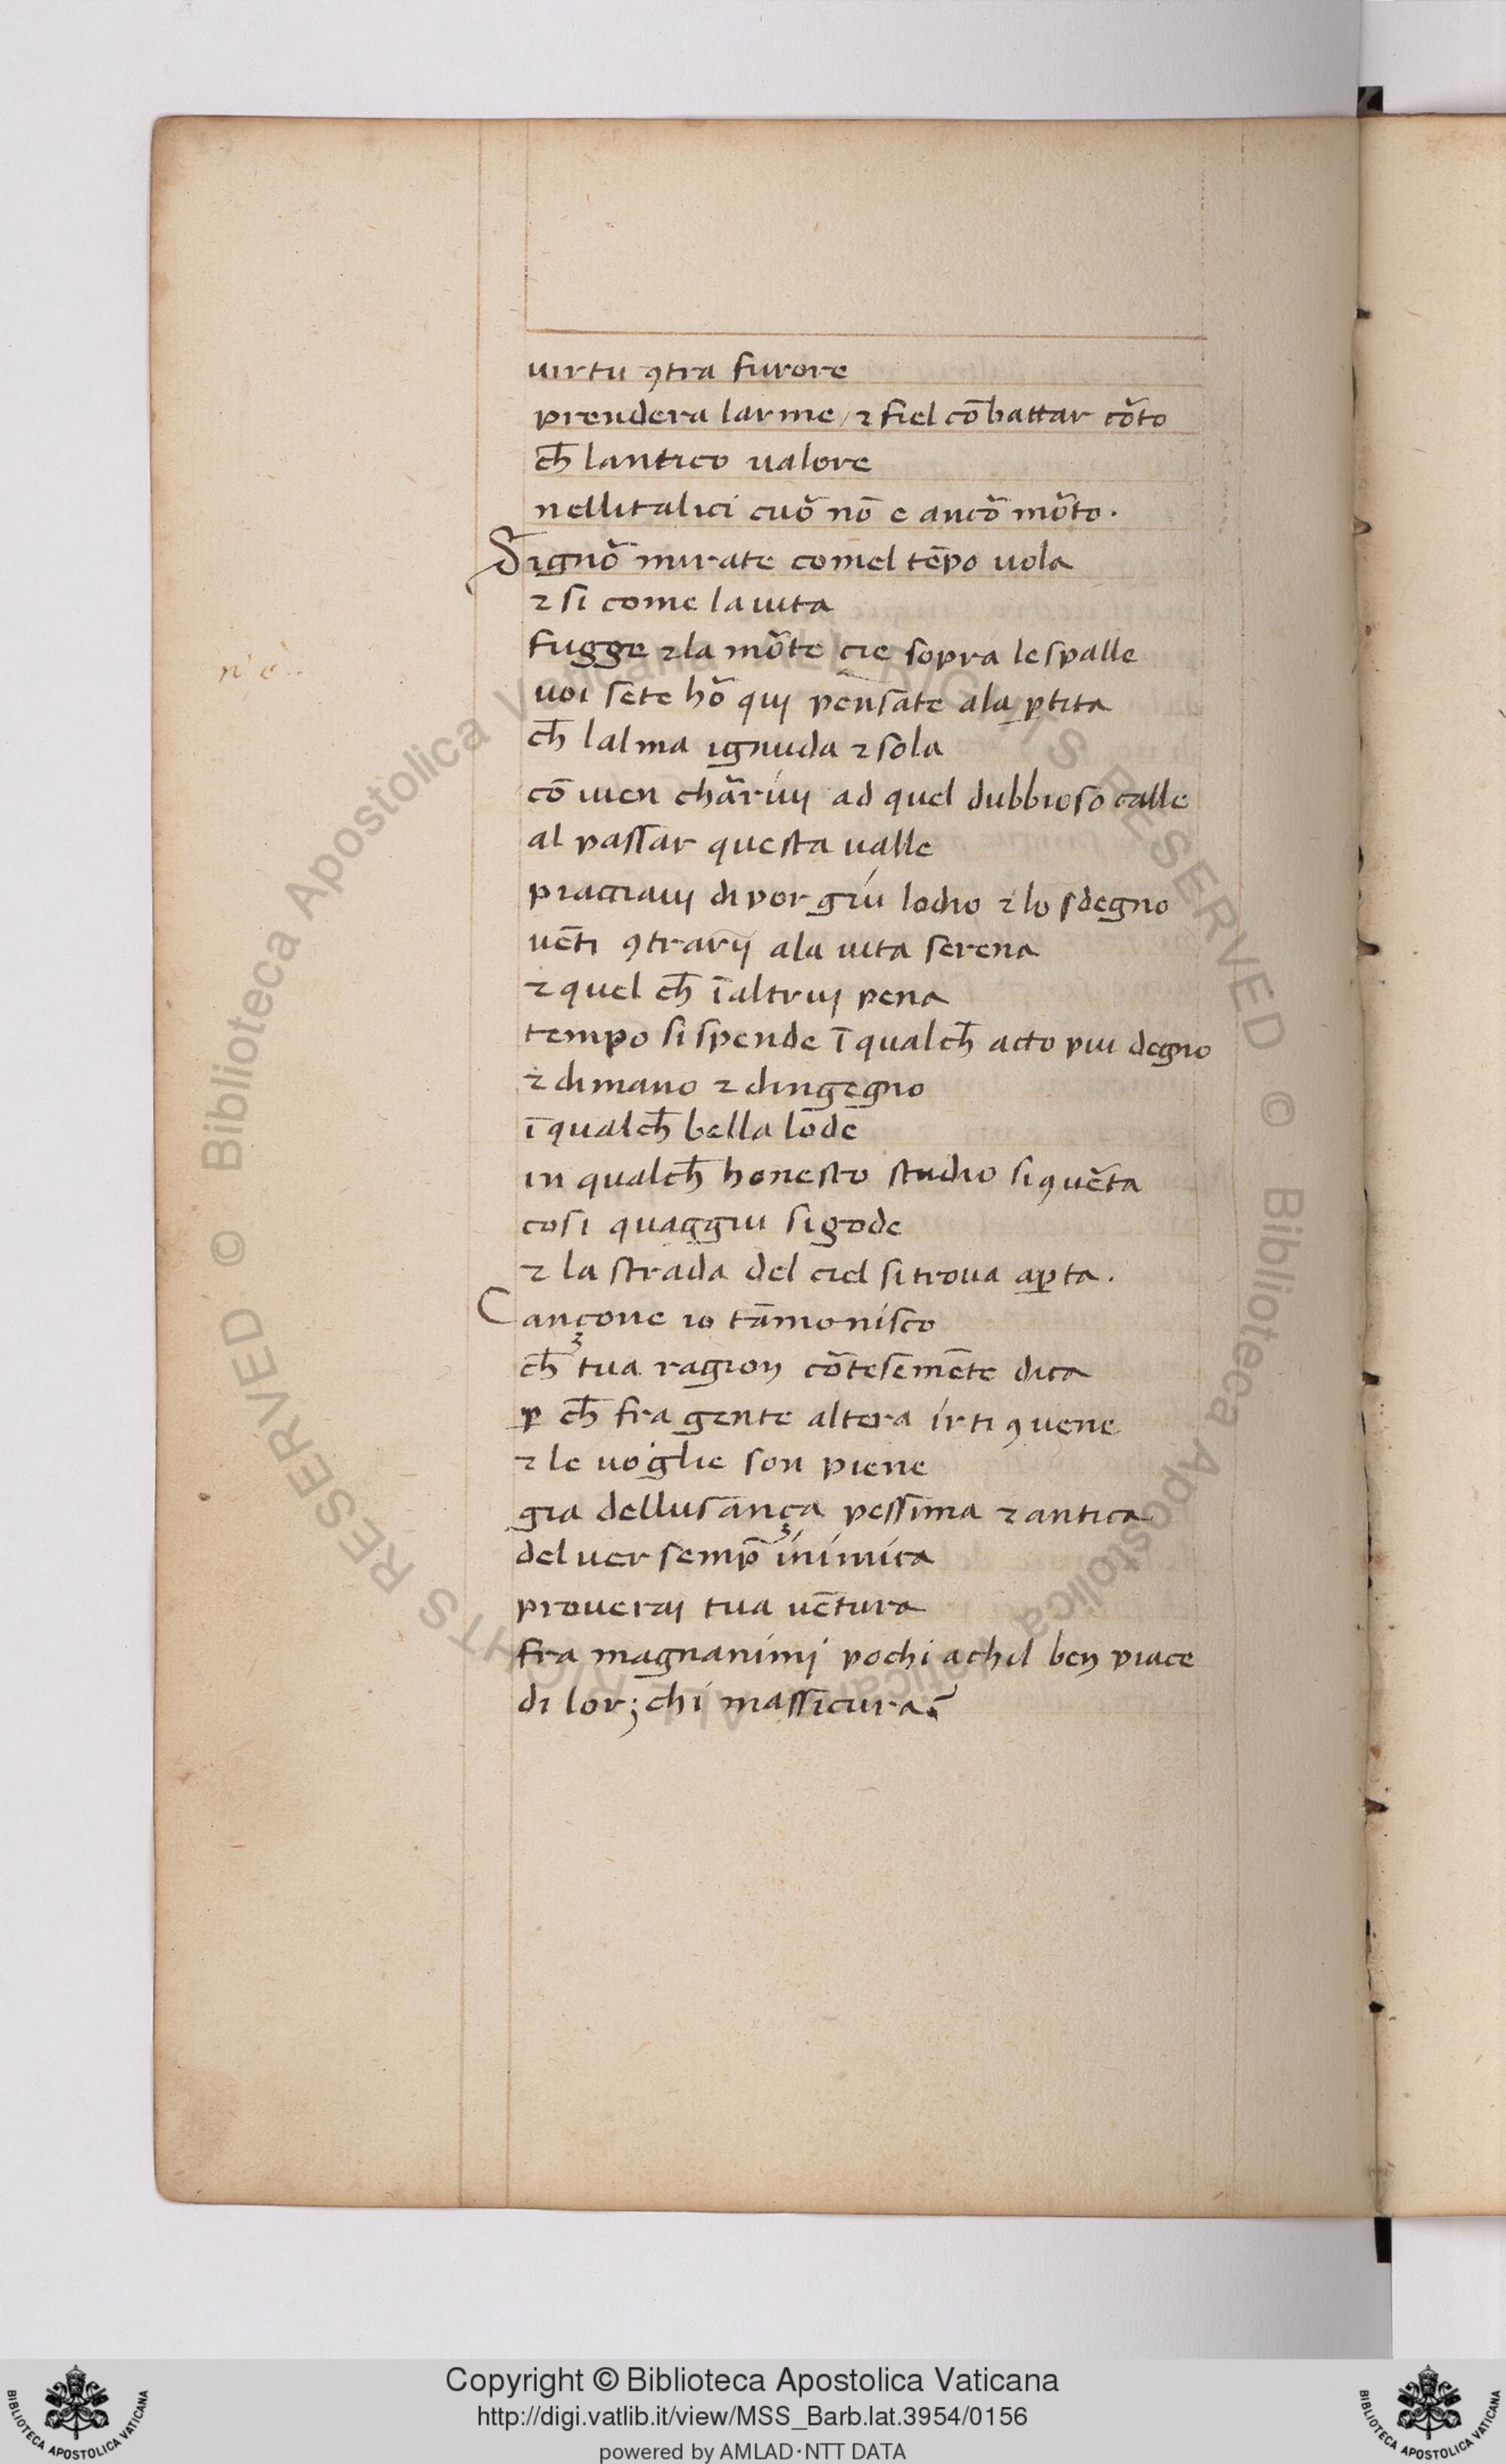 uirtu ꝯtra furore
prendera larme / ⁊ fiel cōbattar cor̃to
ch̄ lantico ualore
nellitalici cuor̃ nō e ancor̃ mor̃to.
Signor̃ mirate comel tēpo uola
⁊ si come la uita
fugge ⁊ la mor̃te cie sopra lespalle
n e ..
uoi sete hor̃ quj pensate ala ꝑtita
ch̄ lalma ignuda ⁊ sola
cō uien char̃riuj ad quel dubbioso calle
al passar questa ualle
piacciauj di por giú lodio ⁊ lo sdegno
uēti ꝯtrarij ala uita serena
⁊ quel ch̄ ī altruj pena
tempo si spende ī qualch̄ acto piu degno
⁊ di mano ⁊ dingegno
ī qualch̄ bella lode
in qualch̄ honesto studio si ꝯuer̃ta
cosi quaggiu si gode
⁊ la strada del ciel si troua aꝑta.
Cançone io tāmonisco
ch̄ tua ragion cor̃tesemēte dica
ꝑ ch̄ fra gente altera írti ꝯuene
⁊ le uoglie son piene
gia dellusança pessima ⁊ antica
del uer semp̄ inimica
prouerai tua uētura
fra magnanimj pochi a chil ben piace
di lor; chi massicura?
Copyright © Biblioteca Apostolica Vaticana
http://digi.vatlib.it/view/MSS_Barb.lat.3954/0156
powered by AMLAD·NTT DATA
BIBLIOTECA APOSTOLICA VATICANA
BIBLIOTECA APOSTOLICA VATICANA